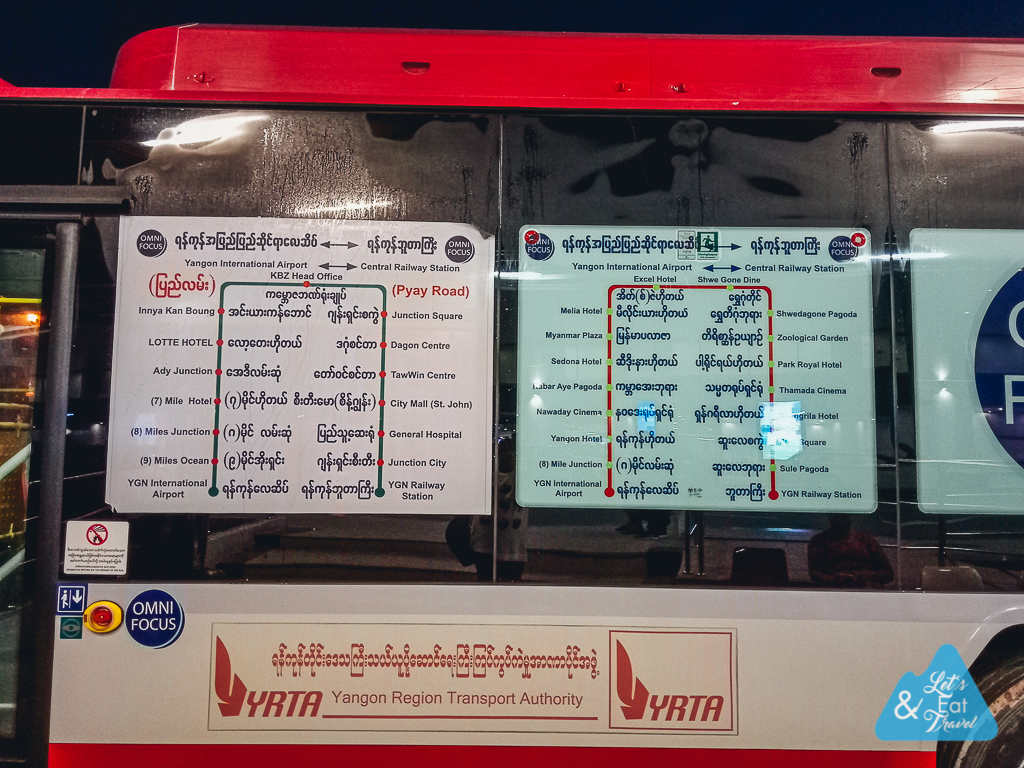 OMNI FOCUS
ရန်ကုန်အပြည်ပြည်ဆိုင်ရာလေဆိပ် ရန်ကုန်ဘူတာကြီး
OMNI FOCUS
Yangon International Airport Central Railway Station
KBZ Head Office
(ပြည်လမ်း)
ကမ္ဘောဇဘဏ်ရုံးချုပ်
(Pyay Road)
Innya Kan Boung အင်းယားကန်ဘောင် ဂျန်းရှင်းစကွဲ Junction Square
LOTTE HOTEL လော့တေးဟိုတယ် ဒဂုံစင်တာ Dagon Centre
Ady Junction အေဒီလမ်းဆုံ တော်ဝင်စင်တာ TawWin Centre
(7) Mile Hotel (၇)မိုင်ဟိုတယ် စီးတီးမော(စိန့်ဂျွန်း) City Mall (St. John)
(8) Miles Junction (၈)မိုင် လမ်းဆုံ ပြည်သူ့ဆေးရုံ General Hospital
(9) Miles Ocean (၉)မိုင်အိုးရှင်း ဂျန်းရှင်းစီးတီး Junction City
YGN International Airport ရန်ကုန်လေဆိပ် ရန်ကုန်ဘူတာကြီး YGN Railway Station
OMNI FOCUS
ရန်ကုန်အပြည်ပြည်ဆိုင်ရာလေဆိပ် ရန်ကုန်ဘူတာကြီး
OMNI FOCUS
Yangon International Airport Central Railway Station
Excel Hotel Shwe Gone Dine
အိတ်(စ်)ဇဲဟိုတယ် ရွှေဂုံတိုင်
Melia Hotel မီလိုင်းယားဟိုတယ် ရွှေတိဂုံဘုရား Shwedagone Pagoda
Myanmar Plaza မြန်မာပလာဇာ တိရိစ္ဆာန်ဥယျာဉ် Zoological Garden
Sedona Hotel ဆီဒိုးနားဟိုတယ် ပါ့ရိုင်ရယ်ဟိုတယ် Park Royal Hotel
Kabar Aye Pagoda ကမ္ဘာအေးဘုရား သမ္မတရုပ်ရှင်ရုံ Thamada Cinema
Nawaday Cinema နဝဒေးရုပ်ရှင်ရုံ ရှန်ဂရီလာဟိုတယ် Hotel
Yangon Hotel ရန်ကုန်ဟိုတယ် ဆူးလေစကွဲ Square
(8) Mile Junction (၈)မိုင်လမ်းဆုံ ဆူးလေဘုရား Sule Pagoda
YGN International Airport ရန်ကုန်လေဆိပ် ဘူတာကြီး YGN Railway Station
OMNI FOCUS
ရန်ကုန်တိုင်းဒေသကြီးသယ်ယူပို့ဆောင်ရေးကြီးကြပ်ကွပ်ကဲမှုအာဏာပိုင်အဖွဲ့
YRTA Yangon Region Transport Authority
YRTA
Let's Eat & Travel